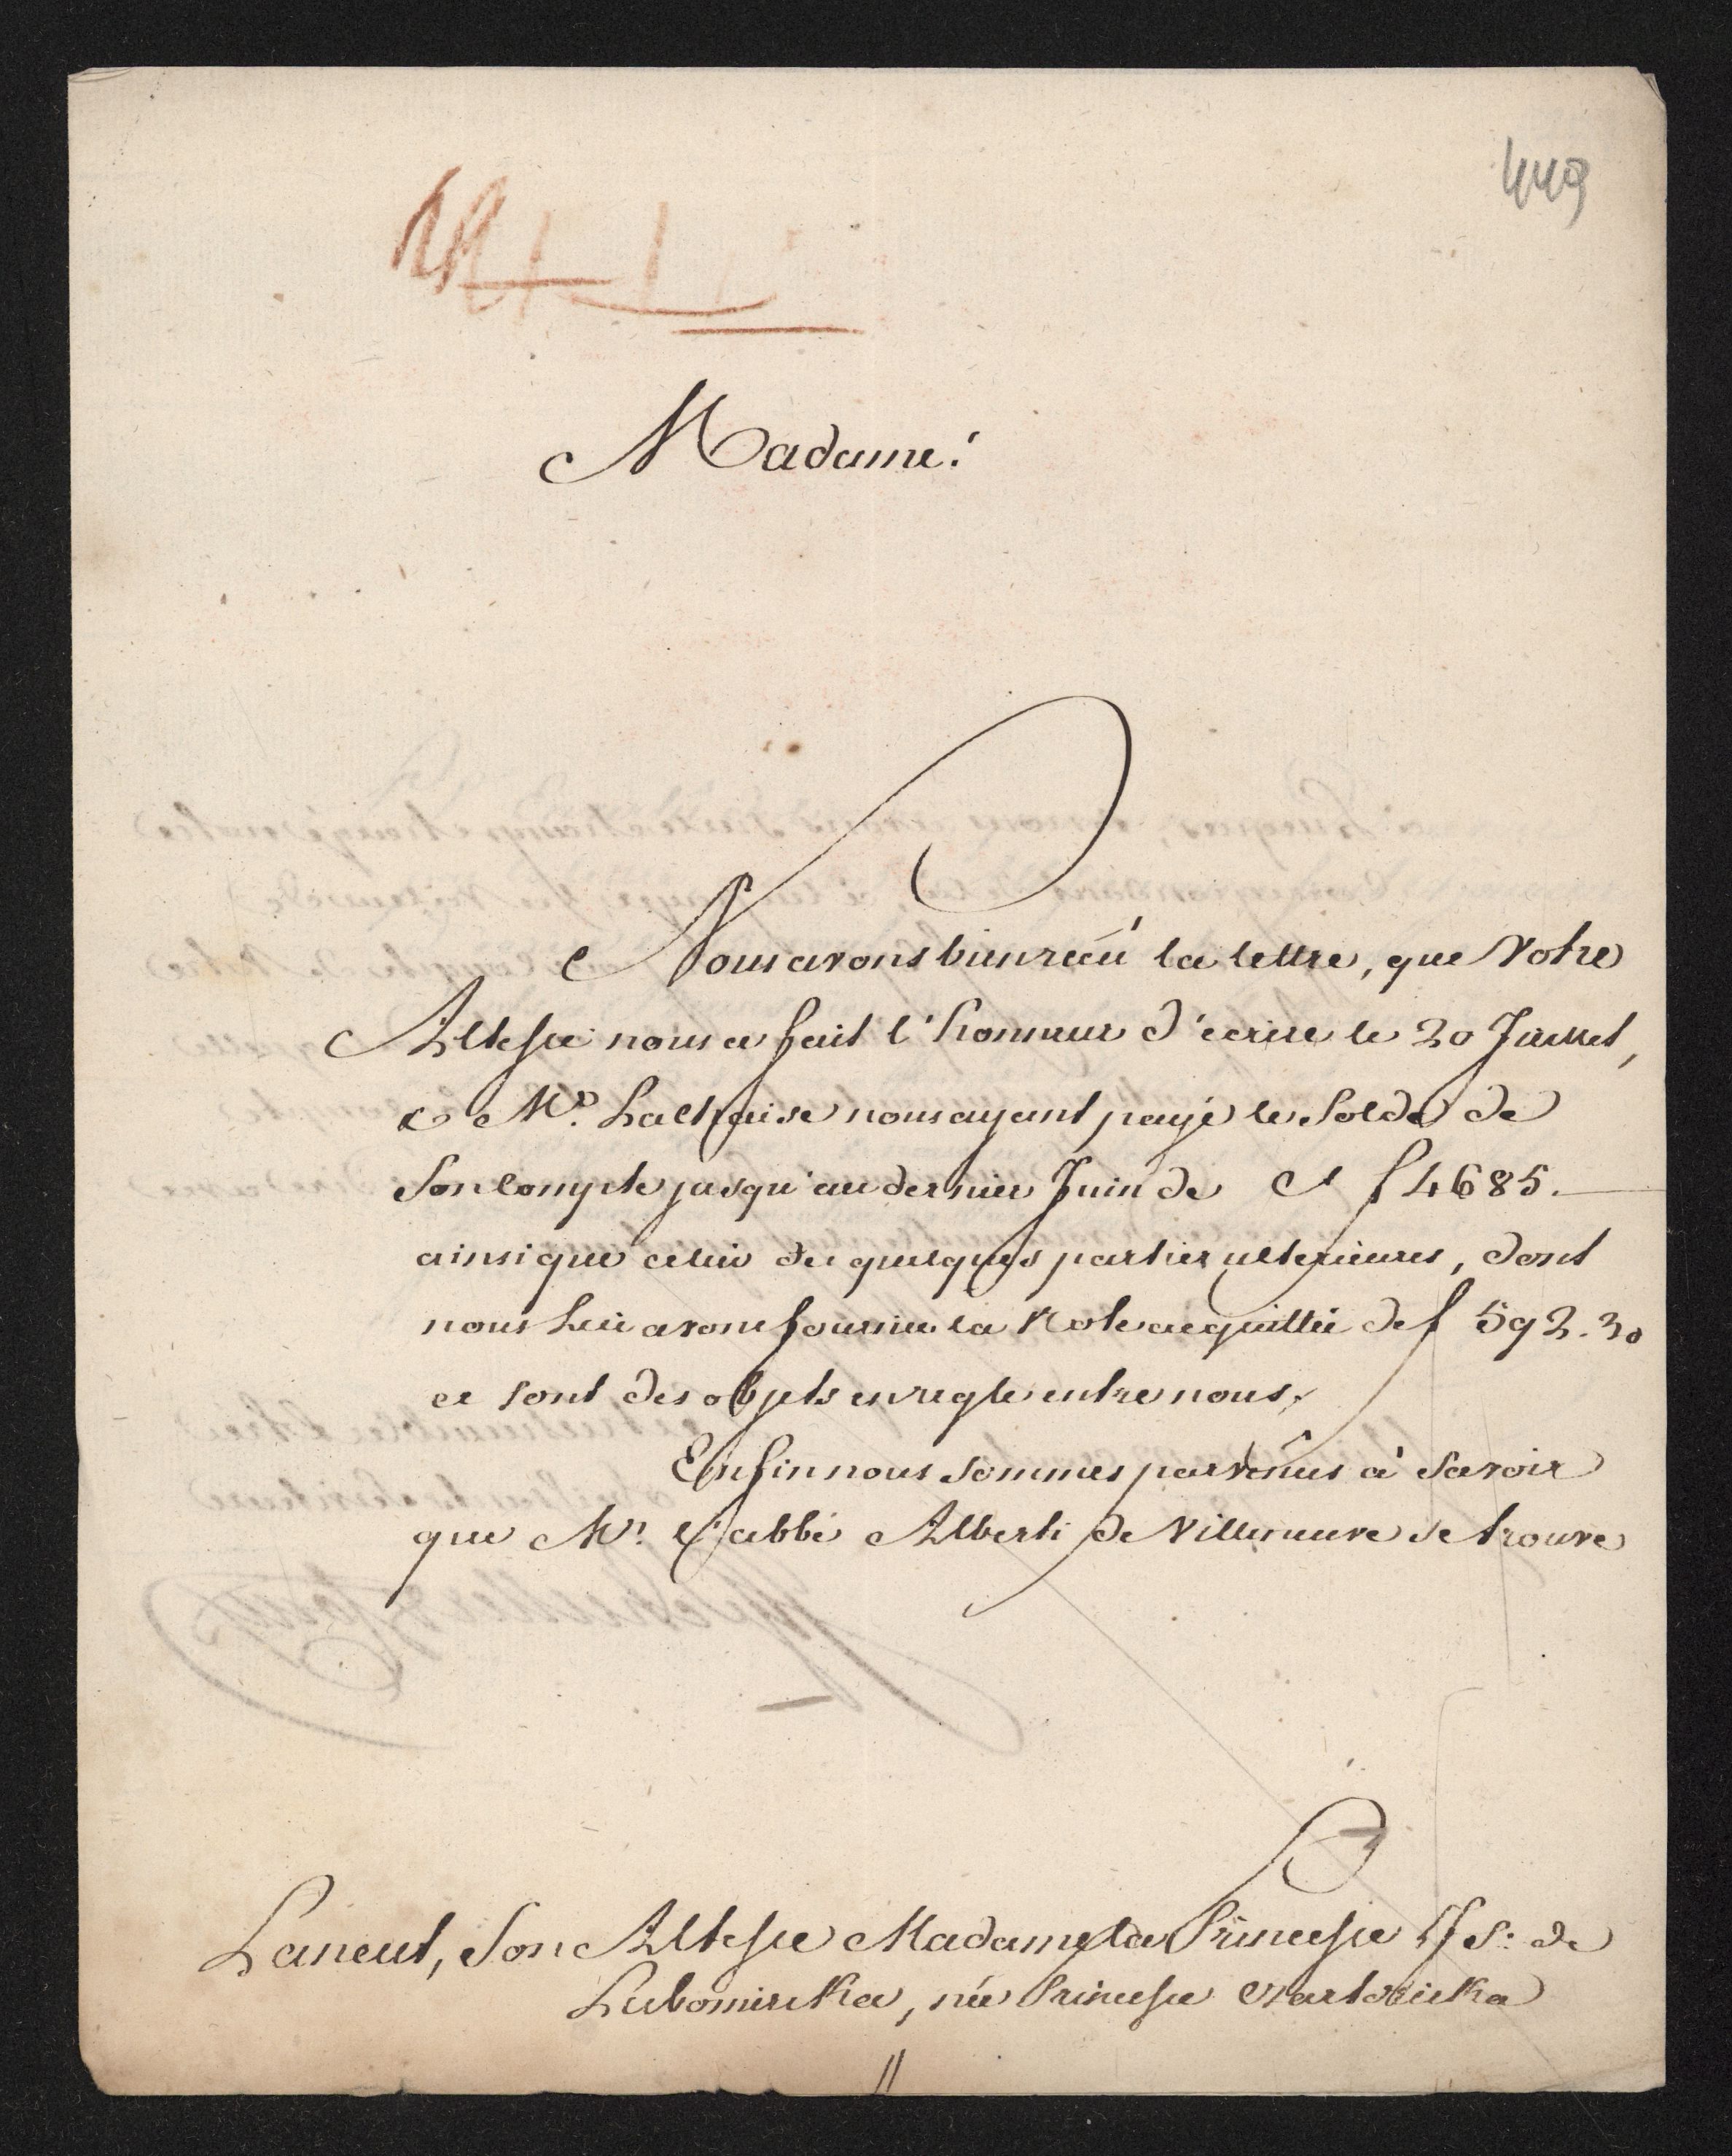 449
Madame!
Nous avons bien recú la lettre, que Votre
Altesse nous a fait l'honneur d'écrire le 20 Juillet,
& Mr. Lachaise nous ayant payé le Solde de
Son Compte jusqu'au dernier Juin de f 4685.
ainsi que celui des quelques parties ulterieures, dont
nous Lui avons fournie la Note acquittée de f 592.30
ce sont des objets en regle entre nous.
Enfin nous sommes parvenus à savoir
que Mr. l'abbé Alberti de Villeneuve se trouve
Lancut, Son Altesse Madame la Princesse de
Lubomirska, née Princesse Czartoriska